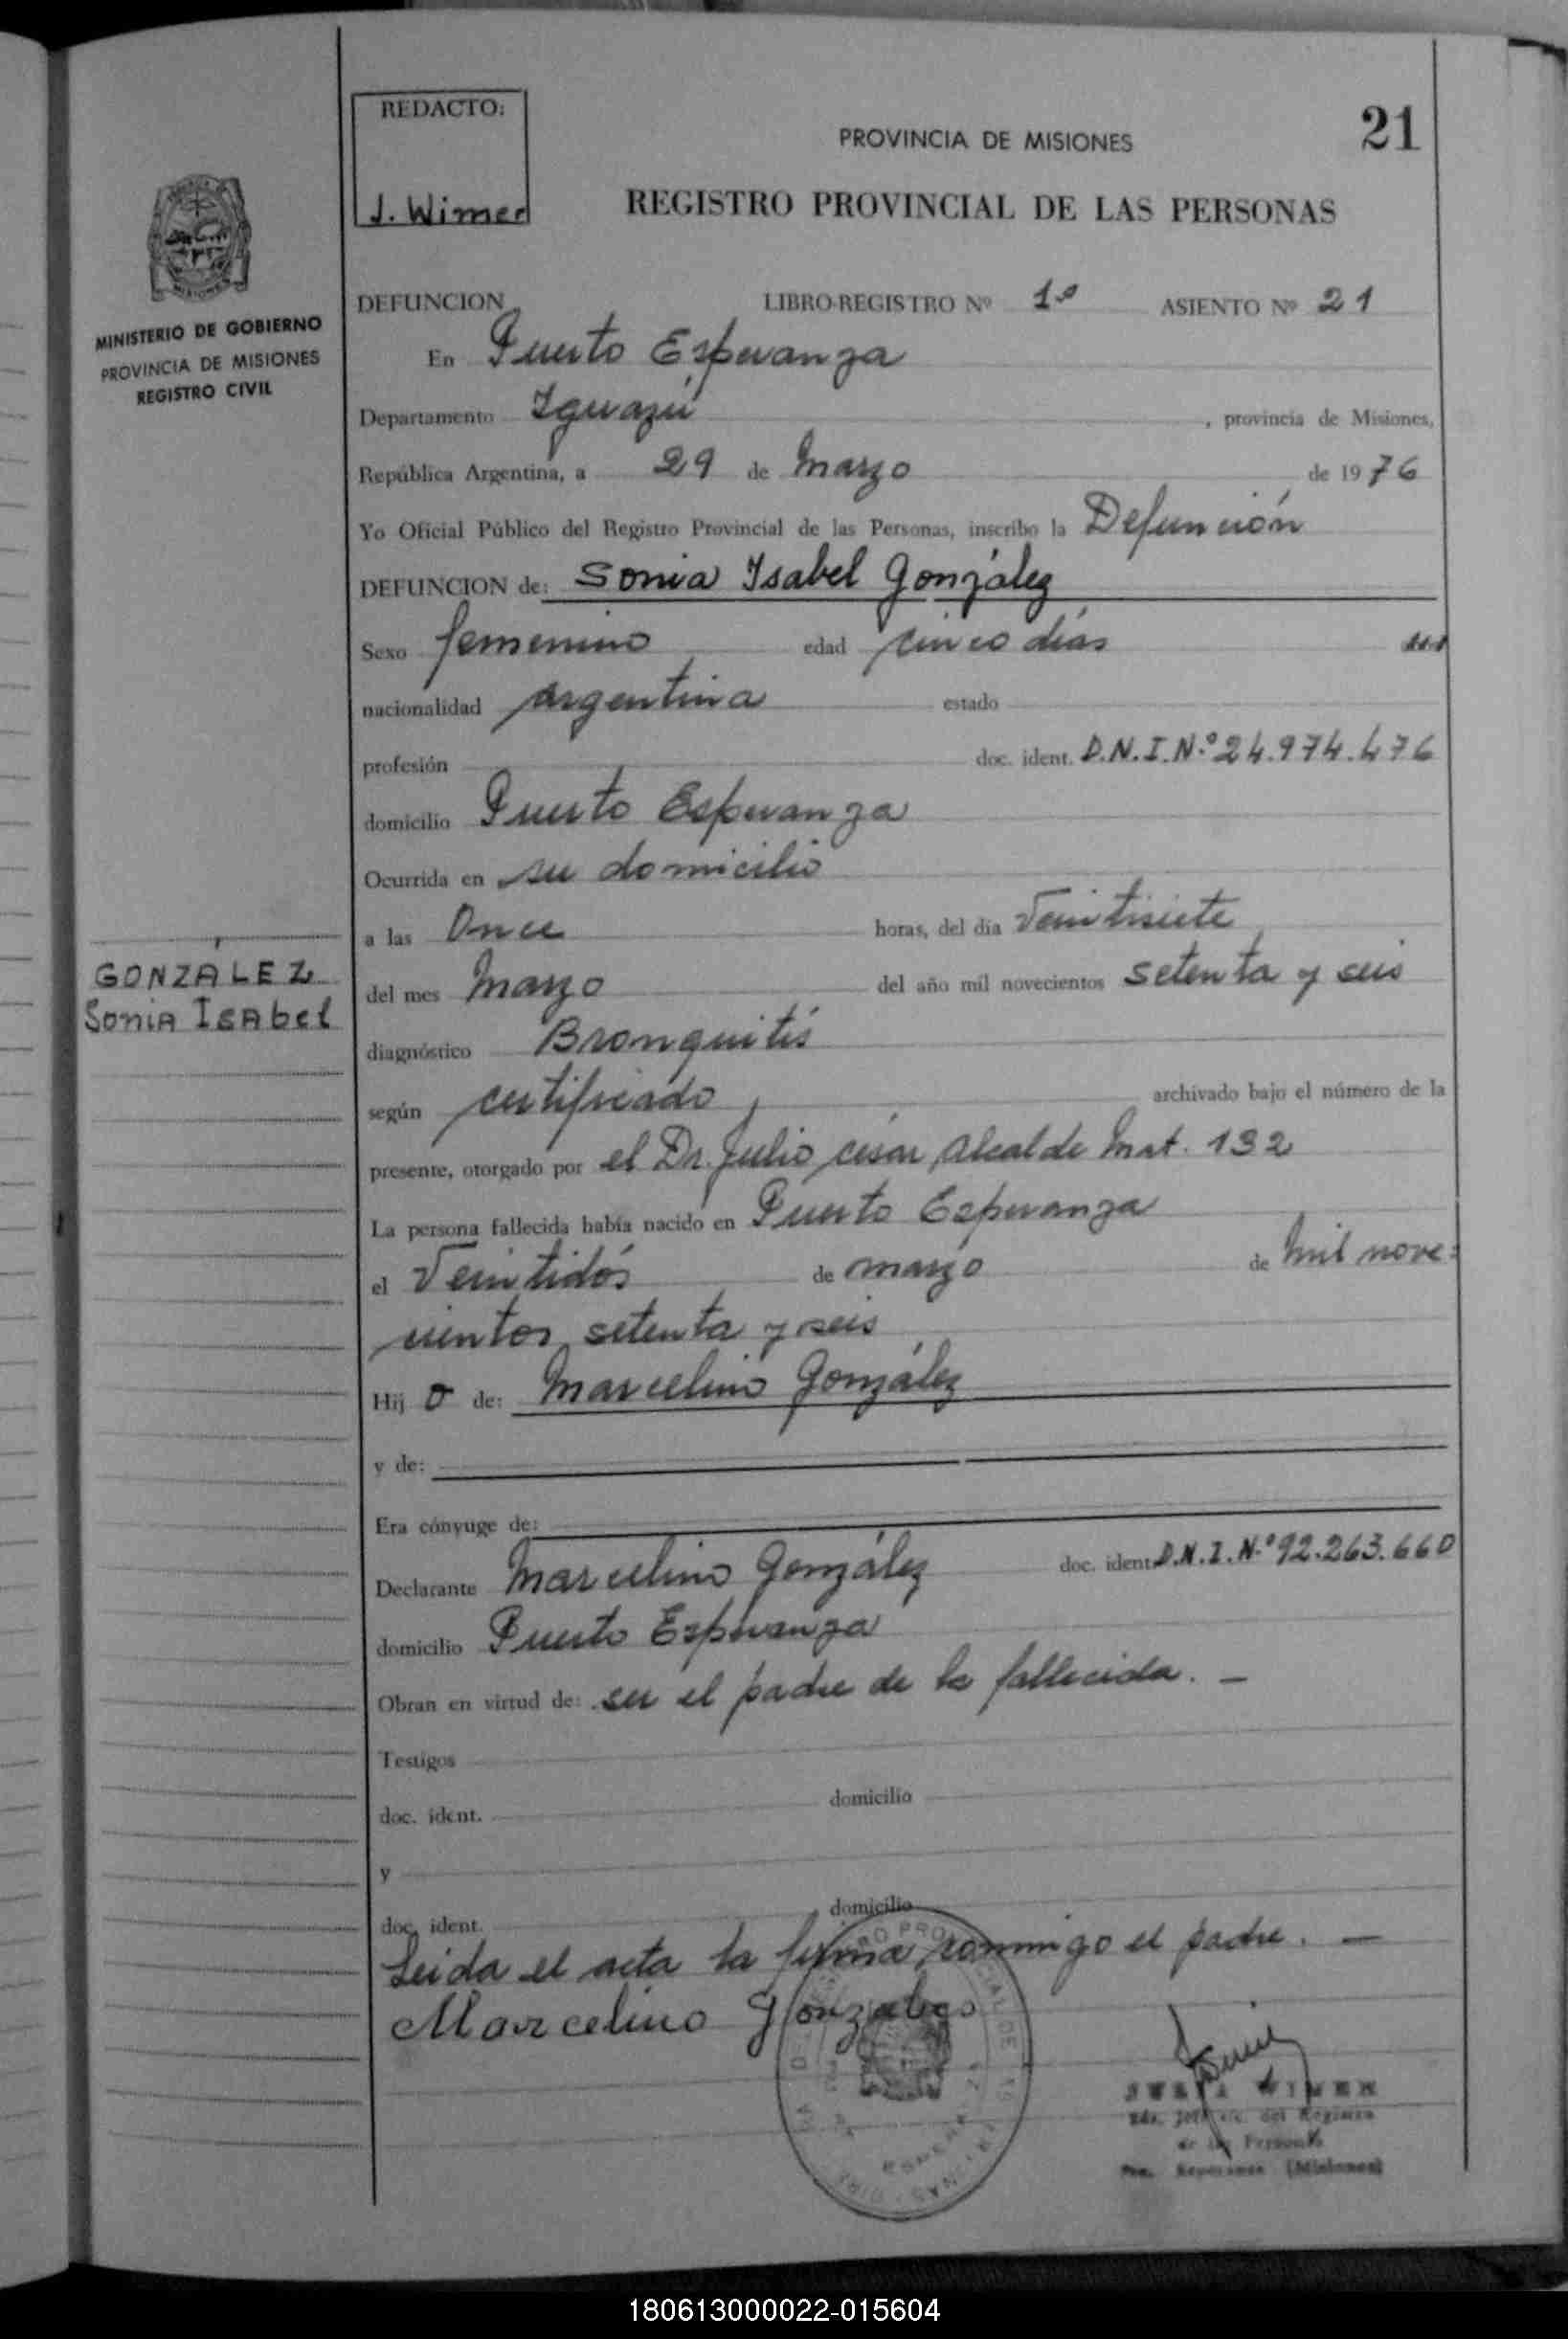 REDACTO:
J. Wimer
PROVINCIA DE MISIONES
21
REGISTRO PROVINCIAL DE LAS PERSONAS
MINISTERIO DE GOBIERNO
PROVINCIA DE MISIONES
REGISTRO CIVIL
DEFUNCION LIBRO-REGISTRO Nº 1º ASIENTO Nº 21
En Puerto Esperanza
Departamento Iguazú, provincia de Misiones,
República Argentina, a 29 de Marzo de 1976
Yo Oficial Público del Registro Provincial de las Personas, inscribo la Defunción
DEFUNCION de: Sonia Isabel González
Sexo femenino edad cinco días
nacionalidad argentina estado
profesión doc. ident. D.N.I.N.º 24.974.476
domicilio Puerto Esperanza
Ocurrida en su domicilio
a las Once horas, del día Veintisiete
del mes Marzo del año mil novecientos setenta y seis
GONZÁLEZ
Sonia Isabel
diagnóstico Bronquitis
según certificado, archivado bajo el número de la
presente, otorgado por el Dr. Julio césar Alcalde Mat. 132
La persona fallecida había nacido en Puerto Esperanza
el Veintidós de marzo de Mil nove=
cientos setenta y seis
Hij o de: Marcelino González
y de:
Era cónyuge de:
Declarante Marcelino González doc. ident. D.N.I.N.º 92.263.660
domicilio Puerto Esperanza
Obran en virtud de: ser el padre de la fallecida. —
Testigos
doc. ident. domicilio
y
doc. ident. domicilio
Leida el acta la firma conmigo el padre. —
Marcelino Gonzales
WIMER
del Registro
de las Personas
Pto. Esperanza (Misiones)
180613000022-015604